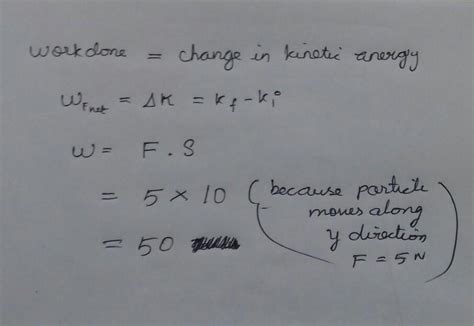 workdone = change in kinetic energy
W_Fnet = ΔK = Kf - Ki
W = F . S
= 5 × 10 (because particle
moves along
= 50 y direction
F = 5N)